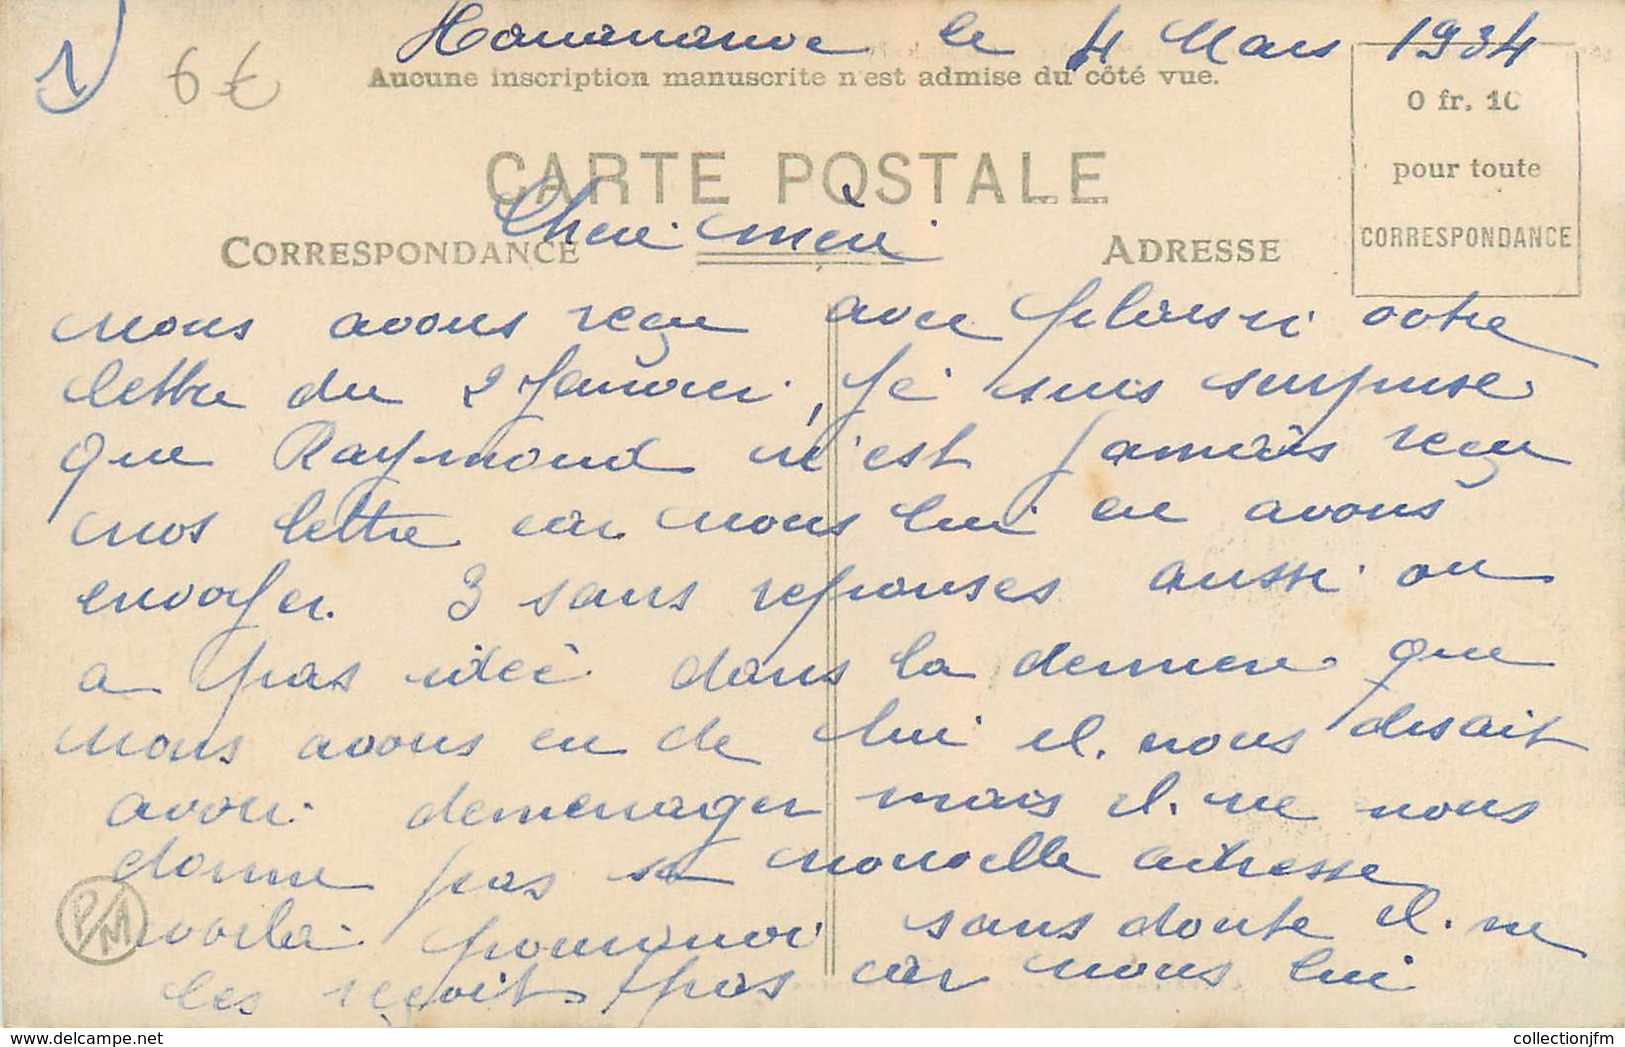 le 4 Mars 1934
6 €
Aucune inscription manuscrite n'est admise du côté vue.
0 fr. 10
pour toute
CORRESPONDANCE
CARTE POSTALE
CORRESPONDANCE
ADRESSE
Cher mère
nous avons reçu avec plaisir votre
lettre du 2 Janvier, Je suis surprise
que Raymond n'est jamais reçu
nos lettre car nous lui en avons
envoyer 3 sans reponses aussi on
a pas idée dans la derniere que
nous avons eu de lui il nous disait
avoir demenager mais il ne nous
donne pas sa nouvelle adresse
voila pourquoi sans doute il ne
les reçoit pas car nous lui
P/M
collectionjfm